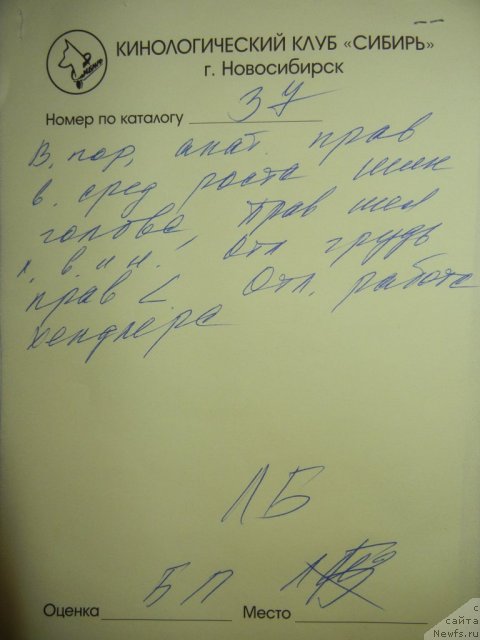 КИНОЛОГИЧЕСКИЙ КЛУБ «СИБИРЬ»
г. Новосибирск
Номер по каталогу
В. пор, анат. прав
в. сред роста шик
голова, прав шея
л. в. и н., отл грудь
прав < Отл. работа
хендлера
ЛБ
БП
Оценка Место
с
сайта
Newfs.ru